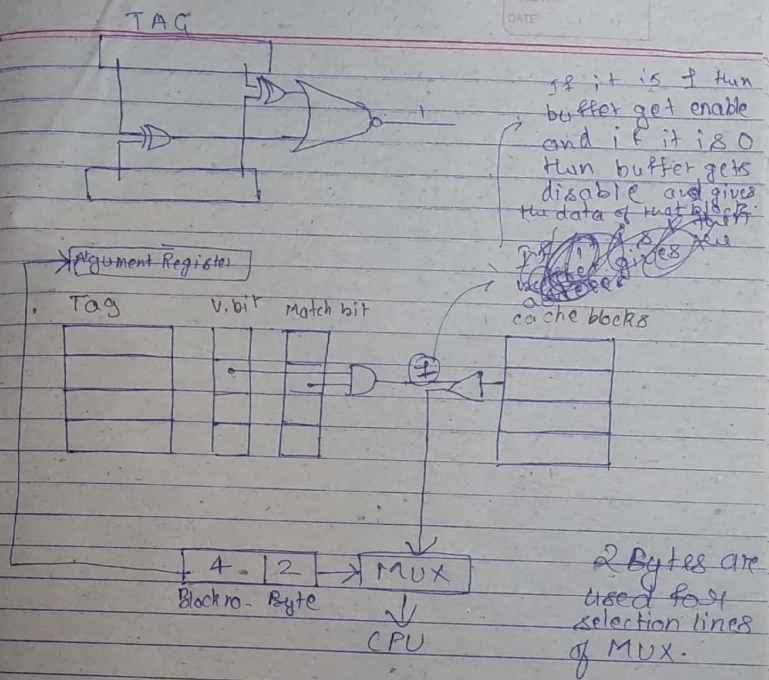 DATE
TAG
If it is 1 then
buffer get enable
and if it is 0
then buffer gets
disable and gives
the data of that block.
Argument Register
Tag
V.bit
Match bit
cache blocks
1
4
2
MUX
Block no. Byte
CPU
2 Bytes are
used for
selection lines
of MUX.